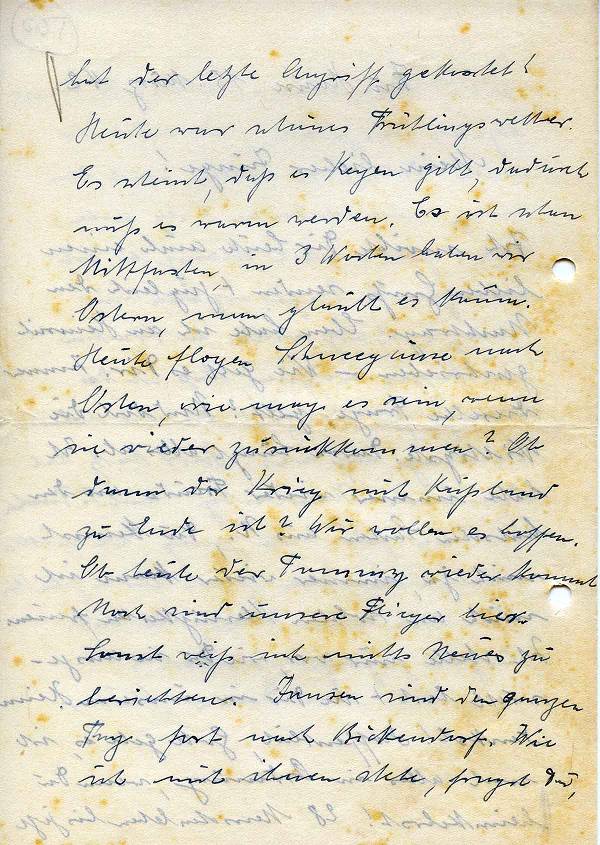 hat der letzte Angriff gekostet!
Heute war schönes Frühlingswetter.
Es scheint, daß es Regen gibt, dadurch
muß es warm werden. Es ist schon
Mittfasten, in 3 Wochen haben wir
Ostern, man glaubt es kaum.
Heute flogen Schneegänse nach
Osten, wie mag es sein, wenn
sie wieder zurückkommen? Ob
dann der Krieg mit Rußland
zu Ende ist? Wir wollen es hoffen.
Ob heute der Tommy wieder kommt
Noch sind unsere Flieger hier.
Sonst weiß ich nichts Neues zu
berichten. Jansen sind den ganzen
Tag fort nach Bickendorf. Wie
ich mit ihnen stehe, fragst Du,